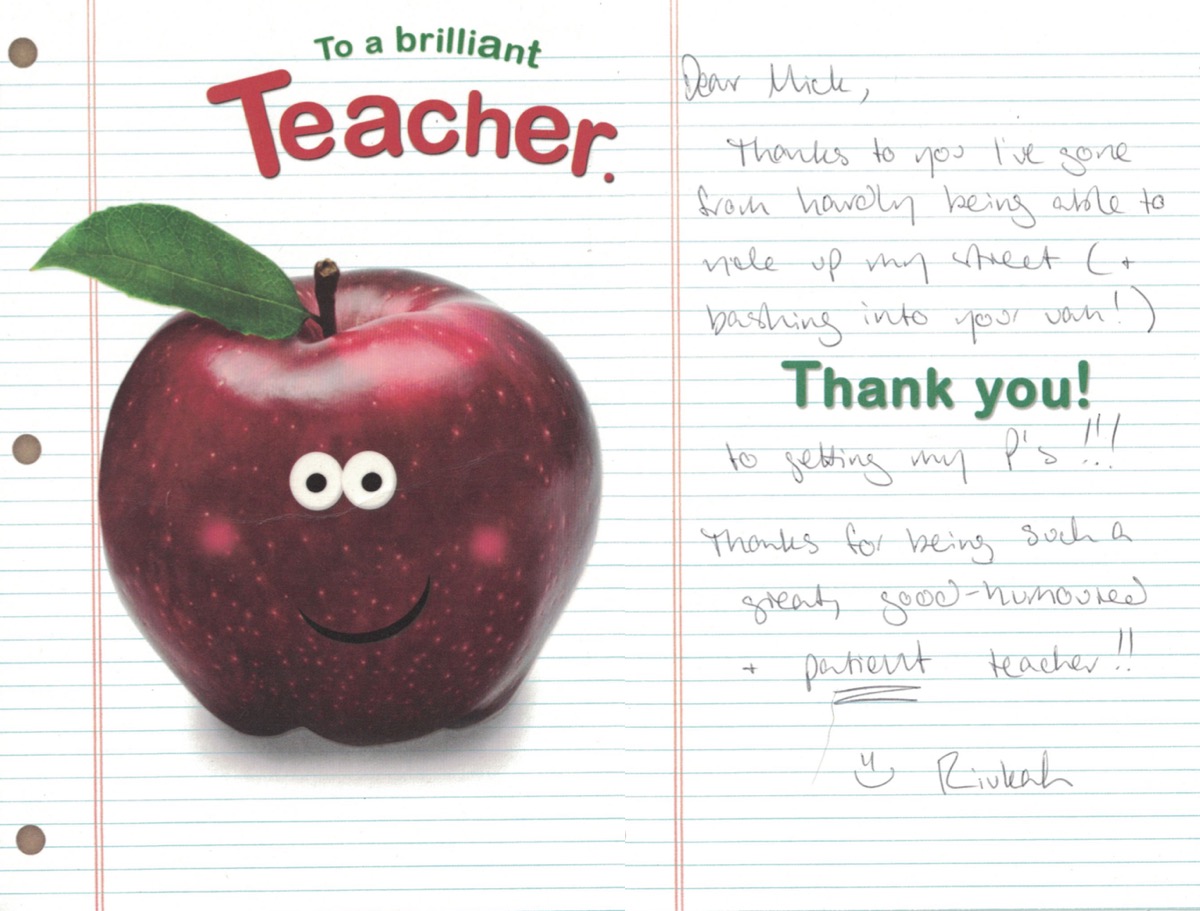 To a brilliant
Teacher.
Dear Mick,
Thanks to you I've gone
from hardly being able to
ride up my street (+
bashing into your van!)
Thank you!
to getting my P's!!!
Thanks for being such a
great, good-humoured
+ patient teacher!!
Rivkah